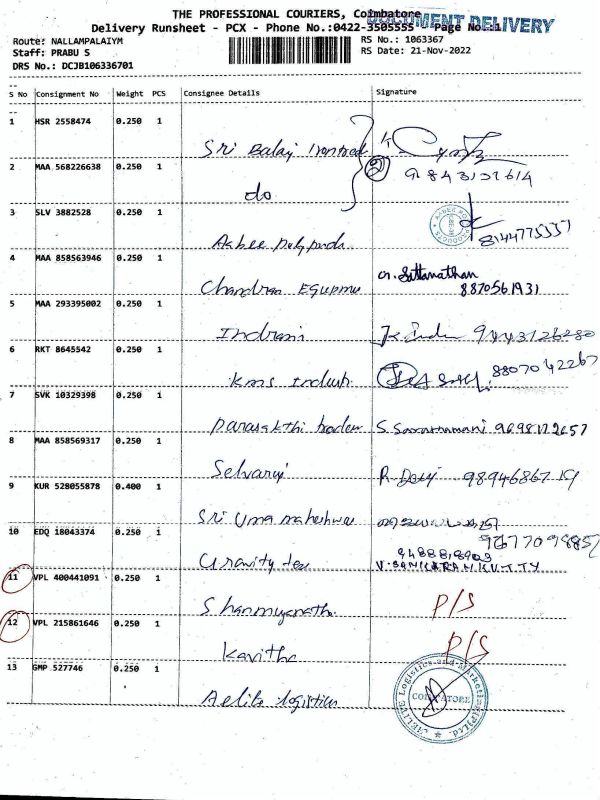 THE PROFESSIONAL COURIERS, Coimbatore
DOCUMENT DELIVERY
Delivery Runsheet - PCX - Phone No.:0422-3505555 Page No.:1
Route: NALLAMPALAIYM
RS No.: 1063367
Staff: PRABU S
RS Date: 21-Nov-2022
DRS No.: DCJB106336701
S No Consignment No Weight PCS Consignee Details Signature
1 HSR 2558474 0.250 1
Sri Balaji
2 MAA 568226638 0.250 1
do
3 SLV 3882528 0.250 1
8144775551
4 MAA 858563946 0.250 1
Chandran
8870561931
5 MAA 293395002 0.250 1
Indrani
6 RKT 8645542 0.250 1
kms
8807042267
7 SVK 10329398 0.250 1
Parasakthi traders
8 MAA 858569317 0.250 1
Selvaraj
9894686719
9 KUR 528055878 0.400 1
Sri Uma maheshwar
10 EDQ 18043374 0.250 1
Gravity tex
9488818903
V. SANKARANKUTTY
11 VPL 400441091 0.250 1
Shanmuganatha
P/S
12 VPL 215861646 0.250 1
Kavitha
P/S
13 GMP 527746 0.250 1
Aelite logistics
COIMBATORE